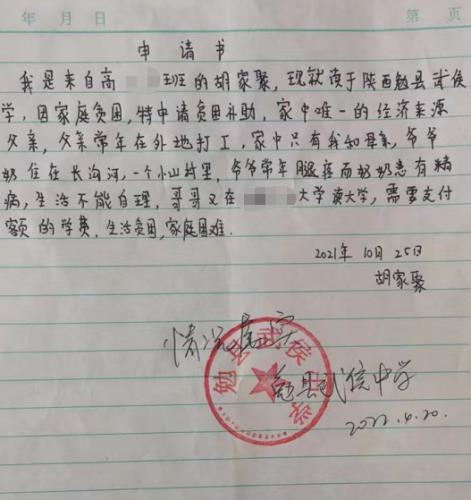 年 月 日 第 页
申请书
我是来自高 班的胡家聚，现就读于陕西勉县武侯
学，因家庭贫困，特申请贫困补助，家中唯一的经济来源
父亲，父亲常年在外地打工，家中只有我和母亲，爷爷
奶住在长沟河，一个小山村里，爷爷常年腿疼而奶奶患有精
病，生活不能自理，哥哥又在 大学读大学，需要支付
额的学费，生活贫困，家庭困难.
2021年 10月 25日
胡家聚
情况属实
勉县武侯中学
勉县武侯中学
2022.4.20.